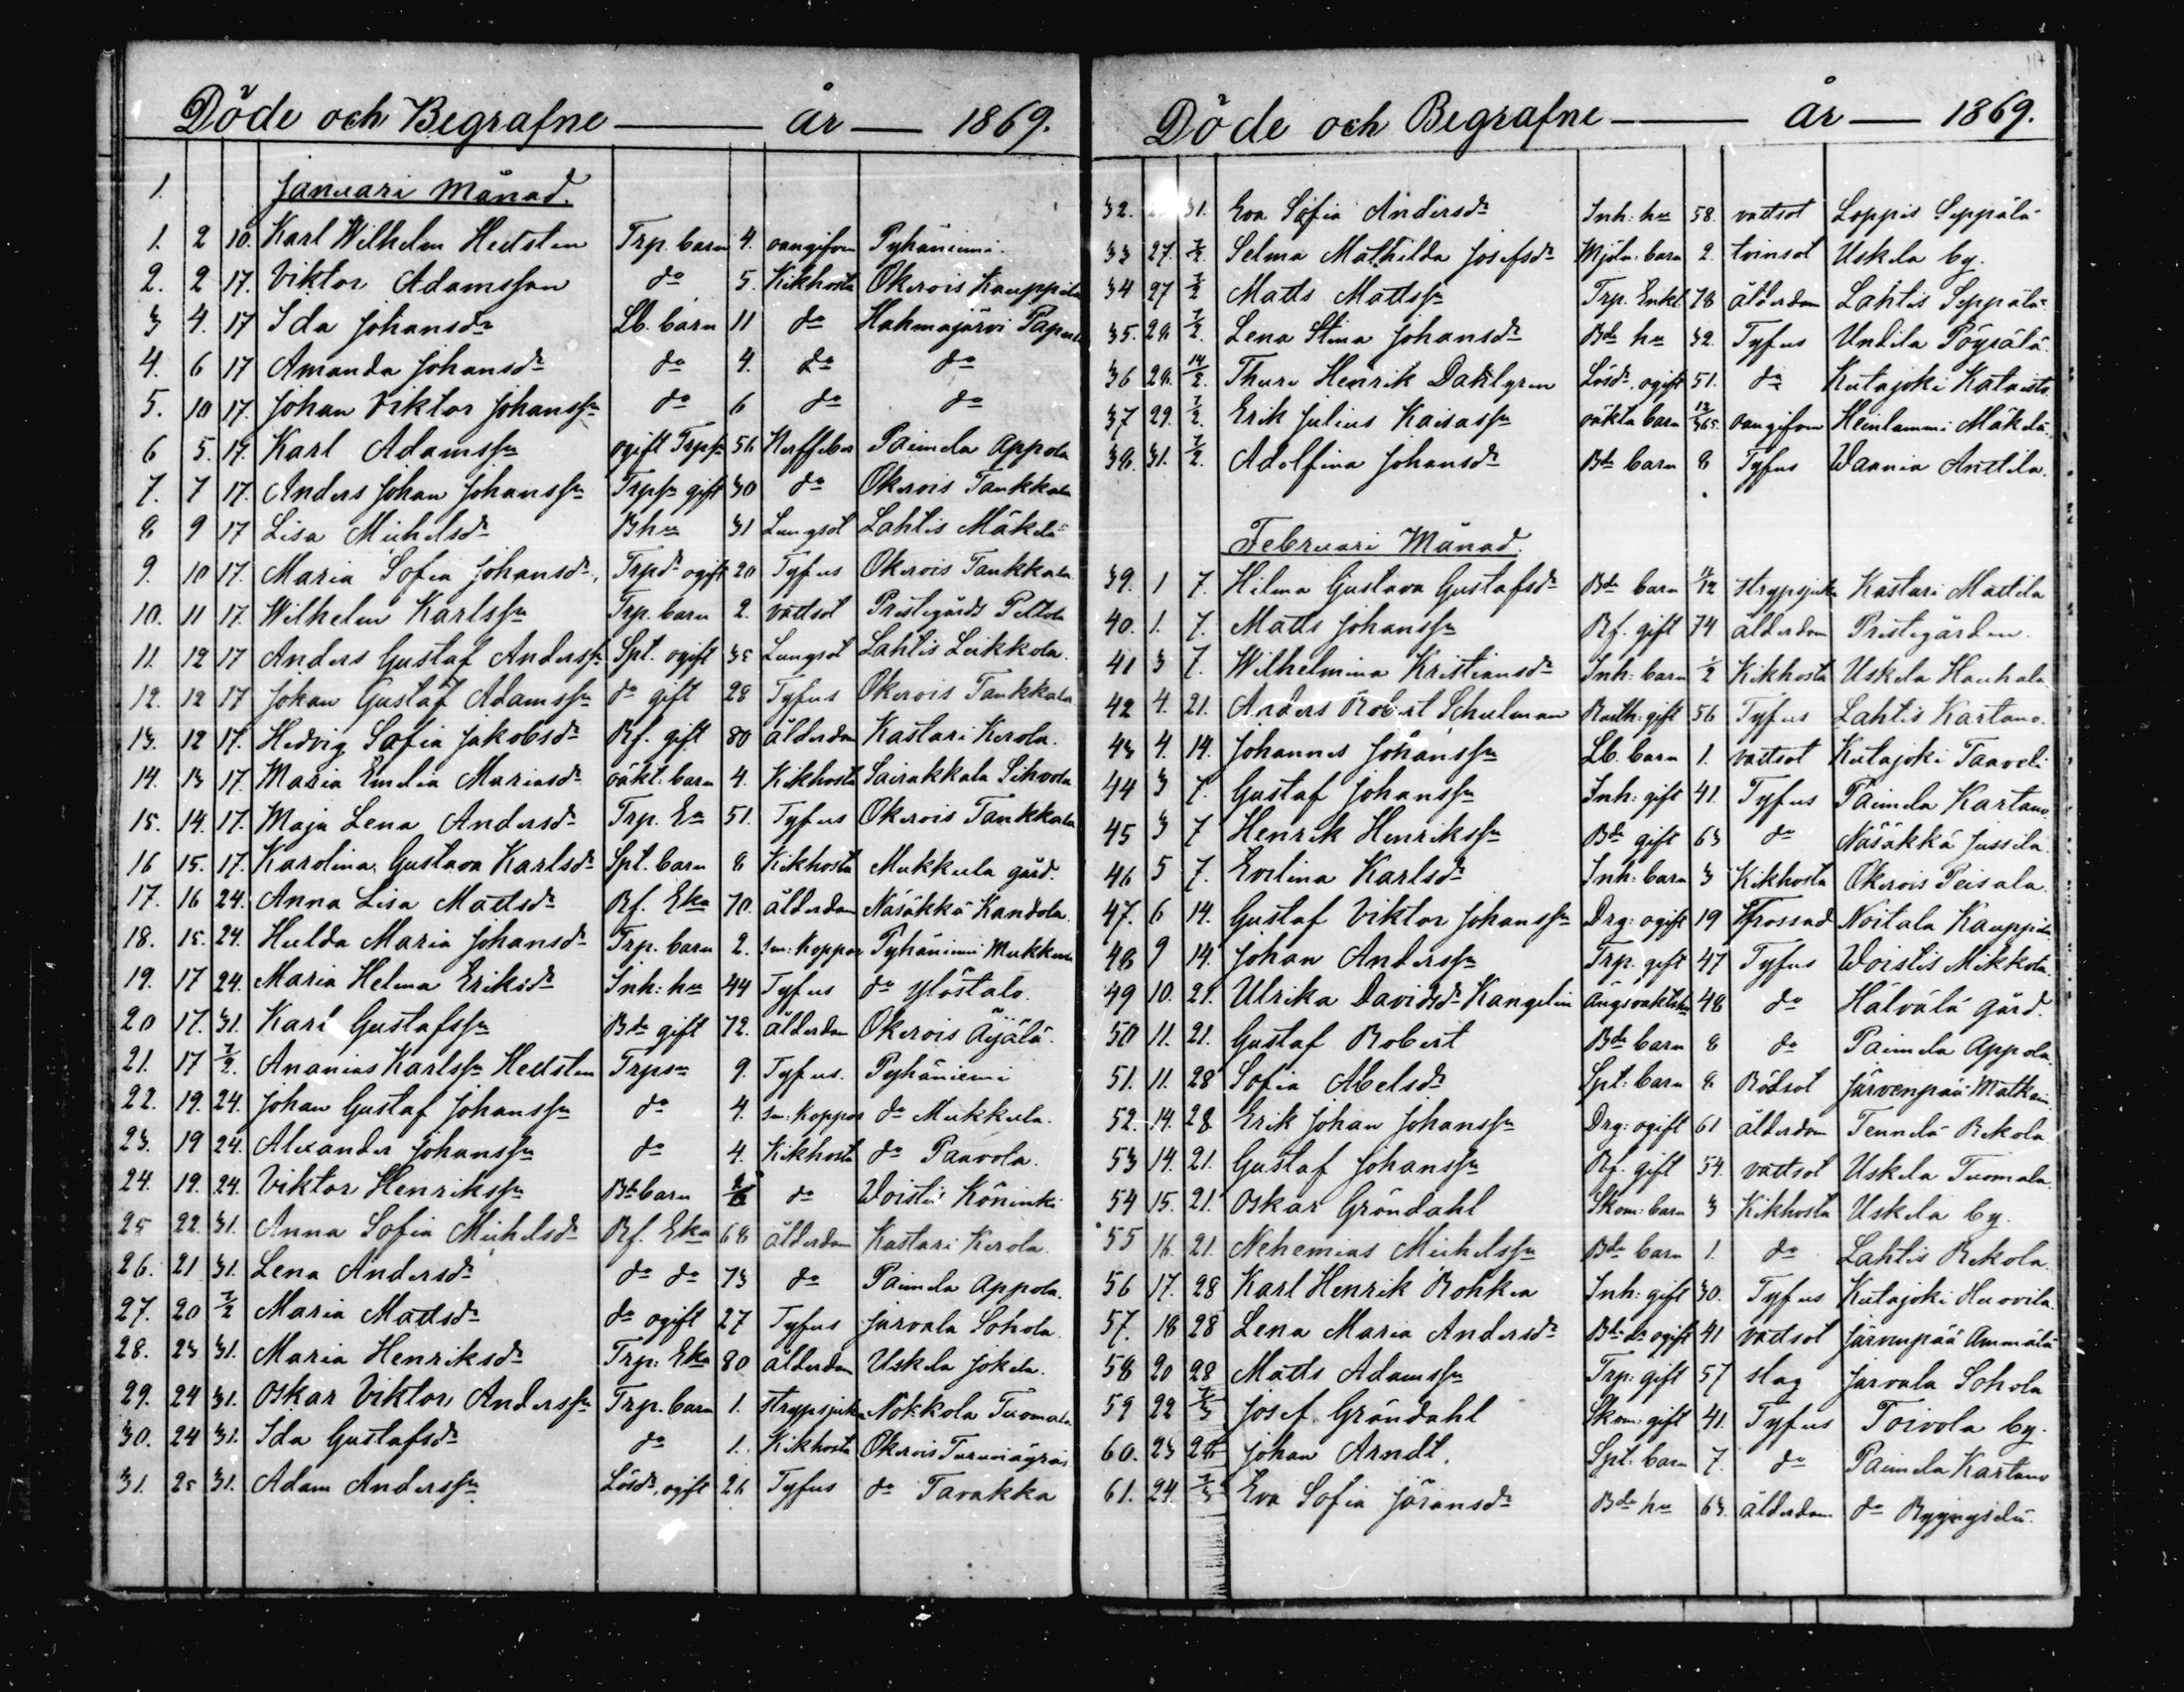 Döde och Begrafne — år — 1869.
1. Januari Månad.
1. 2 10. Karl Wilhelm Hedsten Trp. barn 4. oangifven Pyhäniemi.
2. 2 17. Viktor Adamsson do 5. Kikhosta Okerois Kauppila
3 4. 17 Ida Johansdr Lb. barn 11 do Hahmajärvi
4. 6 17 Amanda Johansdr do 4. do do
5. 10 17. Johan Viktor Johanssn do 6 do do
6 5. 17. Karl Adamssn ogift Trpsn 56 Nerffeber Paimela Appola
7. 7 17. Anders Johan Johanssn Trpsn gift 30 do Okerois Tankkala
8 9 17 Lisa Michelsdr B hu 31 Lungsot Lahtis Mäkelä
9. 10 17. Maria Sofia Johansdr Trpdr ogift 20 Tyfus Okerois Tankkala
10. 11 17. Wilhelm Karlssn Trp. barn 2. vattsot Prestegårds Peltola
11. 12 17 Anders Gustaf Anderssn Spt. ogift 35 Lungsot Lahtis Leikkola.
12. 12 17 Johan Gustaf Adamssn do gift 28 Tyfus Okerois Tankkala
13. 12 17. Hedvig Sofia Jakobsdr Rf. gift 80 ålderdom Kastari Kerola.
14. 13 17. Maria Emelia Mariasdr oäkt. barn 4. Kikhosta Sairakkala Sihvola
15. 14. 17. Maja Lena Andersdr Trp. Ea 51. Tyfus Okerois Tankkala
16 15. 17. Karolina Gustava Karlsdr Spt. barn 8 Kikhosta Mukkula gård.
17. 16 24. Anna Lisa Mattsdr Rf. Eka 70. ålderdom Näsäkkä Kandola.
18. 15. 24. Hulda Maria Johansdr Trp. barn 2. Sm: Koppor Pyhäniemi Mukkula
19. 17 24. Maria Helena Eriksdr Inh: hu 44 Tyfus do Ylöstalo.
20 17. 31. Karl Gustafssn Bde gift 72. ålderdom Okerois Äijälä.
21. 17 7/2. Ananias Karlssn Hedsten Trpsn 9. Tyfus. Pyhäniemi
22. 19. 24. Johan Gustaf Johanssn do 4. Sm: Koppor do Mukkula.
23. 19 24. Alexander Johanssn do 4. Kikhosta do Paavola.
24. 19. 24. Viktor Henrikssn Bde barn do Woistis Köninki
25 22. 31. Anna Sofia Michelsdr Rf. Eka 68 ålderdom Kastari Kerola.
26. 21 31. Lena Andersdr do do 73 do Paimela Appola.
27. 20 7/2 Maria Mattsdr do ogift 27 Tyfus Jarvala Sohola
28. 23 31. Maria Henriksdr Trp: Eka 80 ålderdom Uskela Jokela.
29. 24 31. Oskar Viktor Anderssn Trp. barn 1. strypsjuka Nokkola Tuomala
30. 24 31. Ida Gustafsdr do 1. Kikhosta Okerois
31. 25 31. Adam Anderssn Lösdr, ogift 26 Tyfus do Tavakka
Döde och Begrafne — år — 1869.
32. 31. Eva Sofia Andersdr Inh: hu 58. vattsot Loppis Seppälä
33 27. 7/2. Selma Mathilda Josefsdr Mjöln: barn 2. tvinsot Uskela by.
34 27 7/2 Matts Mattssn Trp. Enkl. 78 ålderdom Lahtis Seppälä
35. 28. 7/2. Lena Stina Johansdr Bde hu 32. Tyfus Undila Pöyrälä.
36 28. 14/2. Thure Henrik Dahlgren Lösdr, ogift 51. do Kutajoki Kataisto
37 29. 7/2. Erik Julius Kaisassn oäkta barn 12/365 oangifven Heinlammi Mäkelä.
38. 31. 7/2. Adolfina Johansdr Bde barn 8 Tyfus Waania Anttila.
Februari Månad.
39. 1 7. Hilma Gustava Gustafsdr Bde barn 11/12 strypsjuka Kastari Mattila
40. 1. 7. Matts Johanssn Rf. gift 74 ålderdom Prestegården.
41 3 7. Wilhelmina Kristiansdr Inh: barn 1/2 Kikhosta Uskela Hauhala
42 4. 21. Anders Robert Schulman Rusth: gift 56 Tyfus Lahtis Kartano.
43 4. 14. Johannes Johanssn Lb. barn 1. vattsot Kutajoki Taaveli
44 3 7. Gustaf Johanssn Inh: gift 41. Tyfus Paimela Kartano
45 3 7 Henrik Henrikssn Bde gift 63 do Näsäkkä Jussila.
46 5 7. Evelina Karlsdr Inh: barn 3 Kikhosta Okerois Peisala.
47. 6 14. Gustaf Viktor Johanssn Drg: ogift 19 Krossad Noitala Kauppila.
48 9 14. Johan Anderssn Trp. gift 47 Tyfus Woistis Mikkola.
49 10. 21. Ulrika Davidsdr Kangelin 48 do Hälvälä gård.
50 11. 21. Gustaf Robert Bde barn 8 do Paimela Appola.
51. 11. 28 Sofia Abelsdr Spt: barn 8 Rödsot Järvenpää
52. 14. 28 Erik Johan Johanssn Drg: ogift 61 ålderdom Tennilä Rekola
53 14. 21. Gustaf Johanssn Rf. gift 54. vattsot Uskela Tuomala.
54 15. 21. Oskar Gröndahl Skom: barn 3 Kikhosta Uskela by.
55 16. 21. Nehemias Michelssn Bde barn 1. do Lahtis Rekola.
56 17. 28 Karl Henrik Rohkea Inh: gift 30. Tyfus Kutajoki Huovila.
57. 18 28 Lena Maria Andersdr Bde dr ogift 41 vattsot Järvenpää Ammälä
58 20 28 Matts Adamssn Trp: gift 57 slag Jarvala Sohola
59 22 7/3 Josef Gröndahl Skom: gift 41. Tyfus Toivola by.
60. 23 28 Johan Arndt. Spt. barn 7. do Paimela Kartano
61. 24. 7/3 Eva Sofia Jöransdr Bde hu 63. ålderdom do